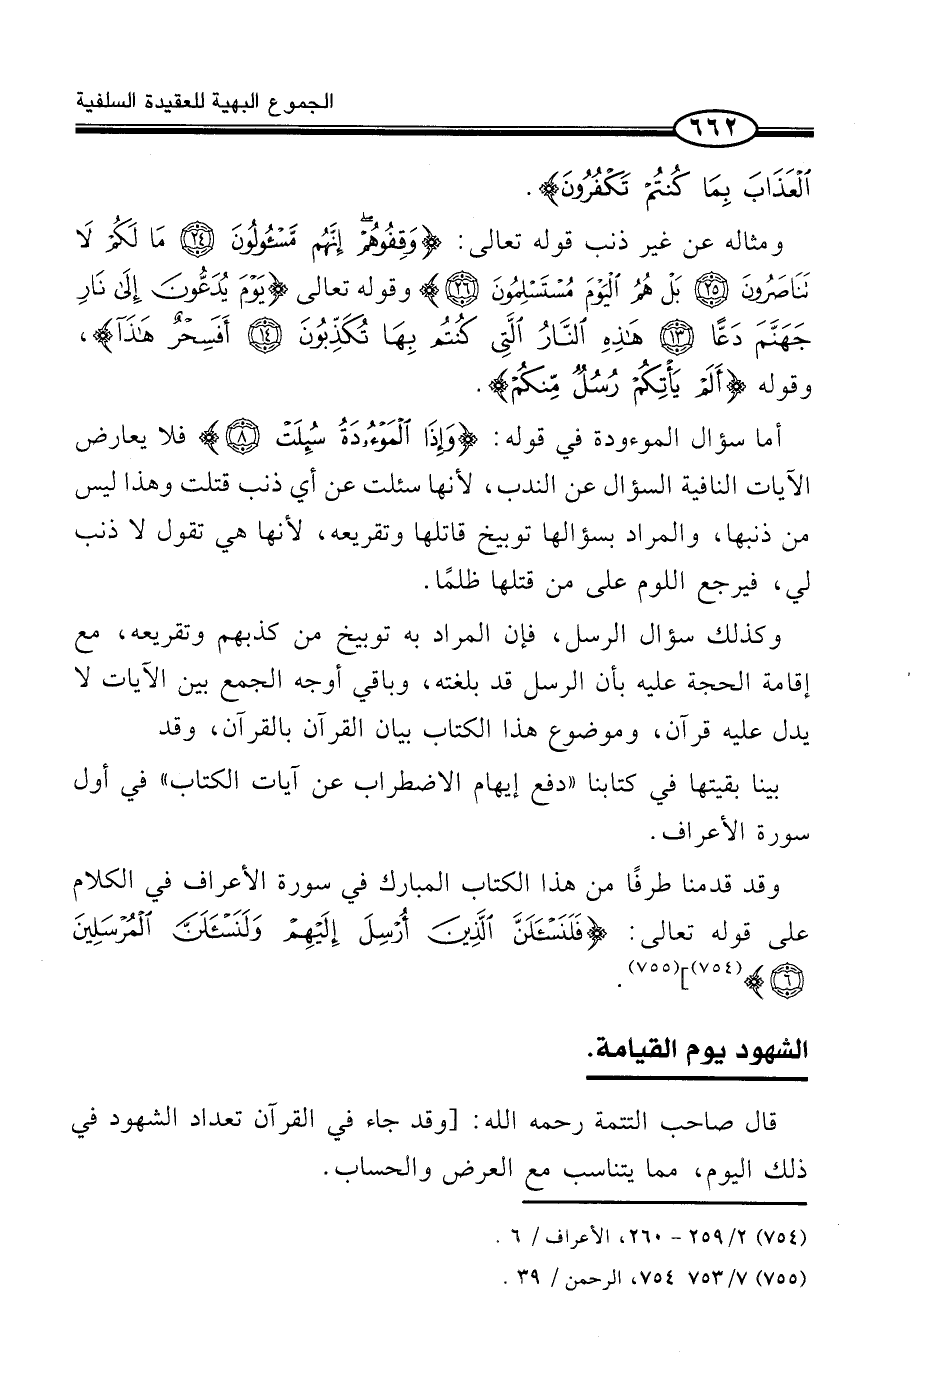 الجموع البهية للعقيدة السلفية
٦٦٢
ٱلۡعَذَابَ بِمَا كُنتُمۡ تَكۡفُرُونَ﴾ .
ومثاله عن غير ذنب قوله تعالى: ﴿وَقِفُوهُمۡۖ إِنَّهُم مَّسۡـُٔولُونَ ٢٤ مَا لَكُمۡ لَا
تَنَاصَرُونَ ٢٥ بَلۡ هُمُ ٱلۡيَوۡمَ مُسۡتَسۡلِمُونَ ٢٦﴾ وقوله تعالى ﴿يَوۡمَ يُدَعُّونَ إِلَىٰ نَارِ
جَهَنَّمَ دَعًّا ١٣ هَٰذِهِ ٱلنَّارُ ٱلَّتِي كُنتُم بِهَا تُكَذِّبُونَ ١٤ أَفَسِحۡرٌ هَٰذَآ﴾،
وقوله ﴿أَلَمۡ يَأۡتِكُمۡ رُسُلٌ مِّنكُمۡ﴾ .
أما سؤال الموءودة في قوله: ﴿وَإِذَا ٱلۡمَوۡءُۥدَةُ سُئِلَتۡ ٨﴾ فلا يعارض
الآيات النافية السؤال عن الندب، لأنها سئلت عن أي ذنب قتلت وهذا ليس
من ذنبها، والمراد بسؤالها توبيخ قاتلها وتقريعه، لأنها هي تقول لا ذنب
لي، فيرجع اللوم على من قتلها ظلمًا.
وكذلك سؤال الرسل، فإن المراد به توبيخ من كذبهم وتقريعه، مع
إقامة الحجة عليه بأن الرسل قد بلغته، وباقي أوجه الجمع بين الآيات لا
يدل عليه قرآن، وموضوع هذا الكتاب بيان القرآن بالقرآن، وقد
بينا بقيتها في كتابنا «دفع إيهام الاضطراب عن آيات الكتاب» في أول
سورة الأعراف.
وقد قدمنا طرفًا من هذا الكتاب المبارك في سورة الأعراف في الكلام
على قوله تعالى: ﴿فَلَنَسۡـَٔلَنَّ ٱلَّذِينَ أُرۡسِلَ إِلَيۡهِمۡ وَلَنَسۡـَٔلَنَّ ٱلۡمُرۡسَلِينَ
٦﴾(٧٥٤)](٧٥٥).
الشهود يوم القيامة.
قال صاحب التتمة رحمه الله: [وقد جاء في القرآن تعداد الشهود في
ذلك اليوم، مما يتناسب مع العرض والحساب.
(٧٥٤) ٢/ ٢٥٩ – ٢٦٠، الأعراف/ ٦ .
(٧٥٥) ٧/ ٧٥٣ ٧٥٤، الرحمن/ ٣٩ .